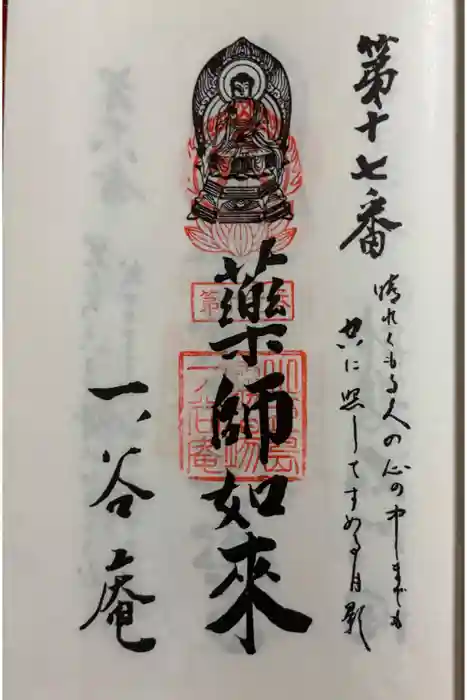 第十七番
晴れくもる人の心の中までも
空に照してすめる月影
藥師如來
一ノ谷庵
小豆島
一ノ谷庵